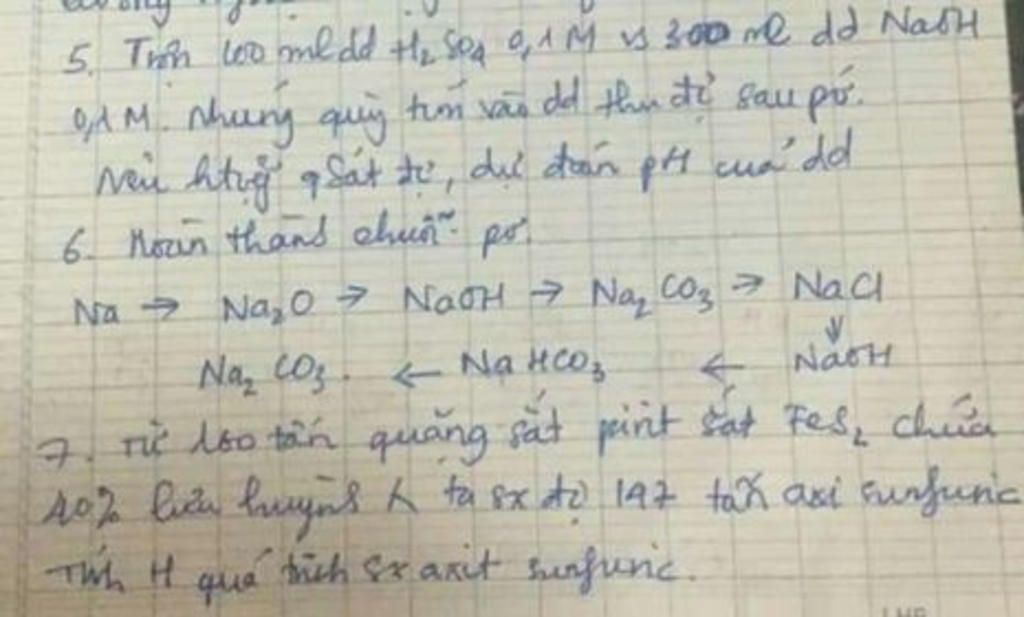 5. Trộn 100 ml dd H₂SO₄ 0,1M vs 300 ml dd NaOH
0,1M. Nhúng quỳ tím vào dd thu đc sau pứ.
Nêu htg qsát đc, dự đoán pH của dd
6. Hoàn thành chuỗi pứ.
Na → Na₂O → NaOH → Na₂CO₃ → NaCl
↓
Na₂CO₃. ← NaHCO₃ ← NaOH
7. Từ 160 tấn quặng sắt pirit sắt FeS₂ chứa
40% lưu huỳnh ta sx đc 147 tấn axi sunfuric
Tính H quá trình sx axit sunfuric.